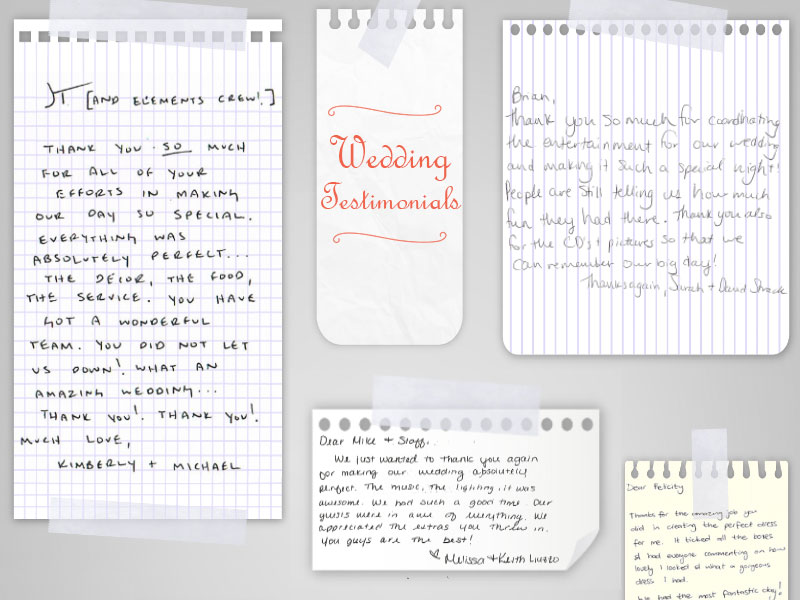 JT [AND ELEMENTS CREW!]
THANK YOU SO MUCH
FOR ALL OF YOUR
EFFORTS IN MAKING
OUR DAY SO SPECIAL.
EVERYTHING WAS
ABSOLUTELY PERFECT...
THE DÉCOR, THE FOOD,
THE SERVICE. YOU HAVE
GOT A WONDERFUL
TEAM. YOU DID NOT LET
US DOWN! WHAT AN
AMAZING WEDDING...
THANK YOU! THANK YOU!
MUCH LOVE,
KIMBERLY + MICHAEL
Wedding
Testimonials
Brian,
Thank you so much for coordinating
the entertainment for our wedding
and making it such a special night!
People are still telling us how much
fun they had there. Thank you also
for the CD's + pictures so that we
can remember our big day!
Thanks again, Sarah + David
Dear Mike + Staff,
We just wanted to thank you again
for making our wedding absolutely
perfect. The music, the lighting, it was
awesome. We had such a good time. Our
guests were in awe of everything. We
appreciated the extras you threw in.
You guys are the best!
Melissa + Keith Liuzzo
Dear Felicity
Thanks for the amazing job you
did in creating the perfect dress
for me. It ticked all the boxes
& had everyone commenting on how
lovely I looked & what a gorgeous
dress I had.
We had the most fantastic day!